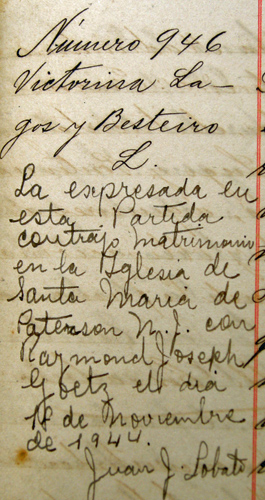 Número 946
Victorina La-
gos y Besteiro
L.
La expresada en
esta Partida
contrajo matrimonio
en la Iglesia de
Santa Maria de
Paterson N.J. con
Raymond Joseph
Goetz el dia
de Noviembre
de 1944.
Juan J. Lobato